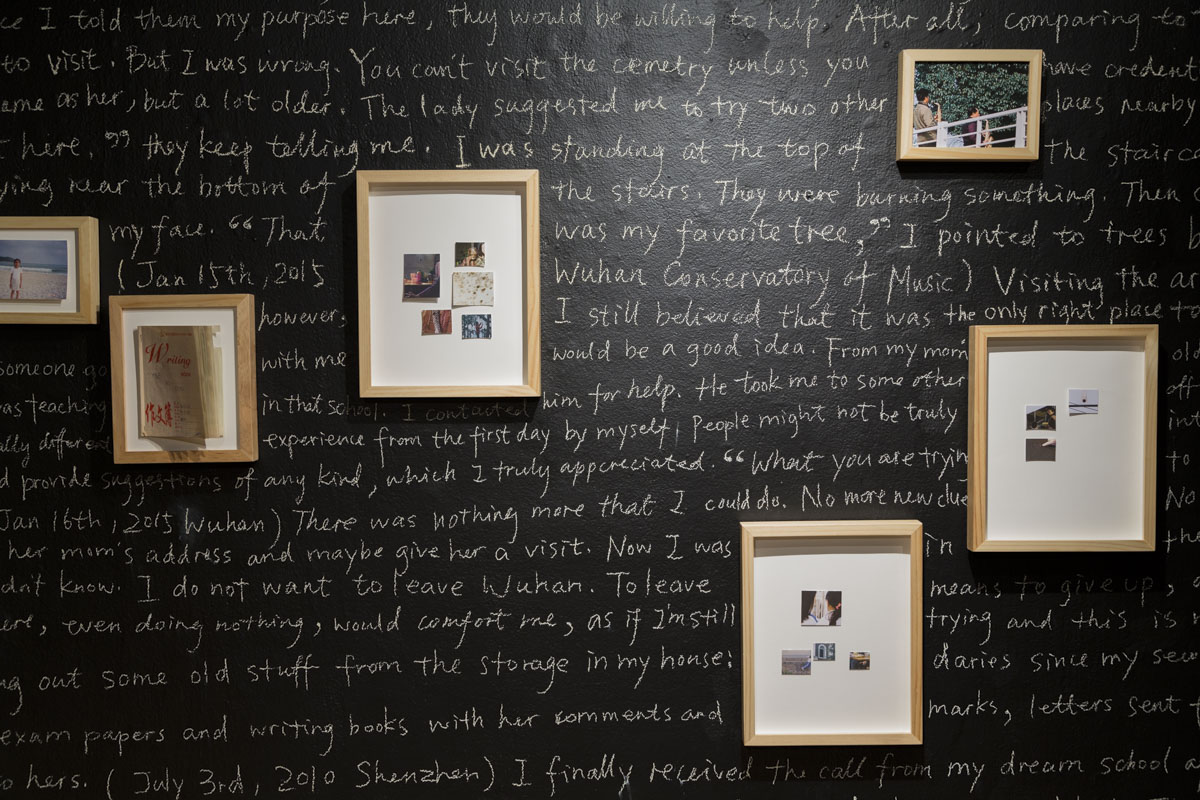 ce I told them my purpose here, they would be willing to help. After all, comparing to
to visit. But I was wrong. You can't visit the cemetry unless you have credent
ame as her, but a lot older. The lady suggested me to try two other places nearby
t here," they keep telling me. I was standing at the top of the stairca
ying near the bottom of the stairs. They were burning something. Then
my face. "That was my favorite tree," I pointed to trees b
(Jan 15th, 2015 Wuhan Conservatory of Music) Visiting the ar
however, I still believed that it was the only right place to
someone go with me would be a good idea. From my mom old
was teaching in that school. I contacted him for help. He took me to some other off
ally different experience from the first day by myself, People might not be truly int
d provide suggestions of any kind, which I truly appreciated. "What you are tryin to
Jan 16th, 2015 Wuhan) There was nothing more that I could do. No more new clue No
her mom's address and maybe give her a visit. Now I was in the
dn't know. I do not want to leave Wuhan. To leave means to give up,
ere, even doing nothing, would comfort me, as if I'm still trying and this is
ng out some old stuff from the storage in my house: diaries since my sec
exam papers and writing books with her comments and marks, letters sent t
o hers. (July 3rd, 2010 Shenzhen) I finally received the call from my dream school a
Writing
作文集